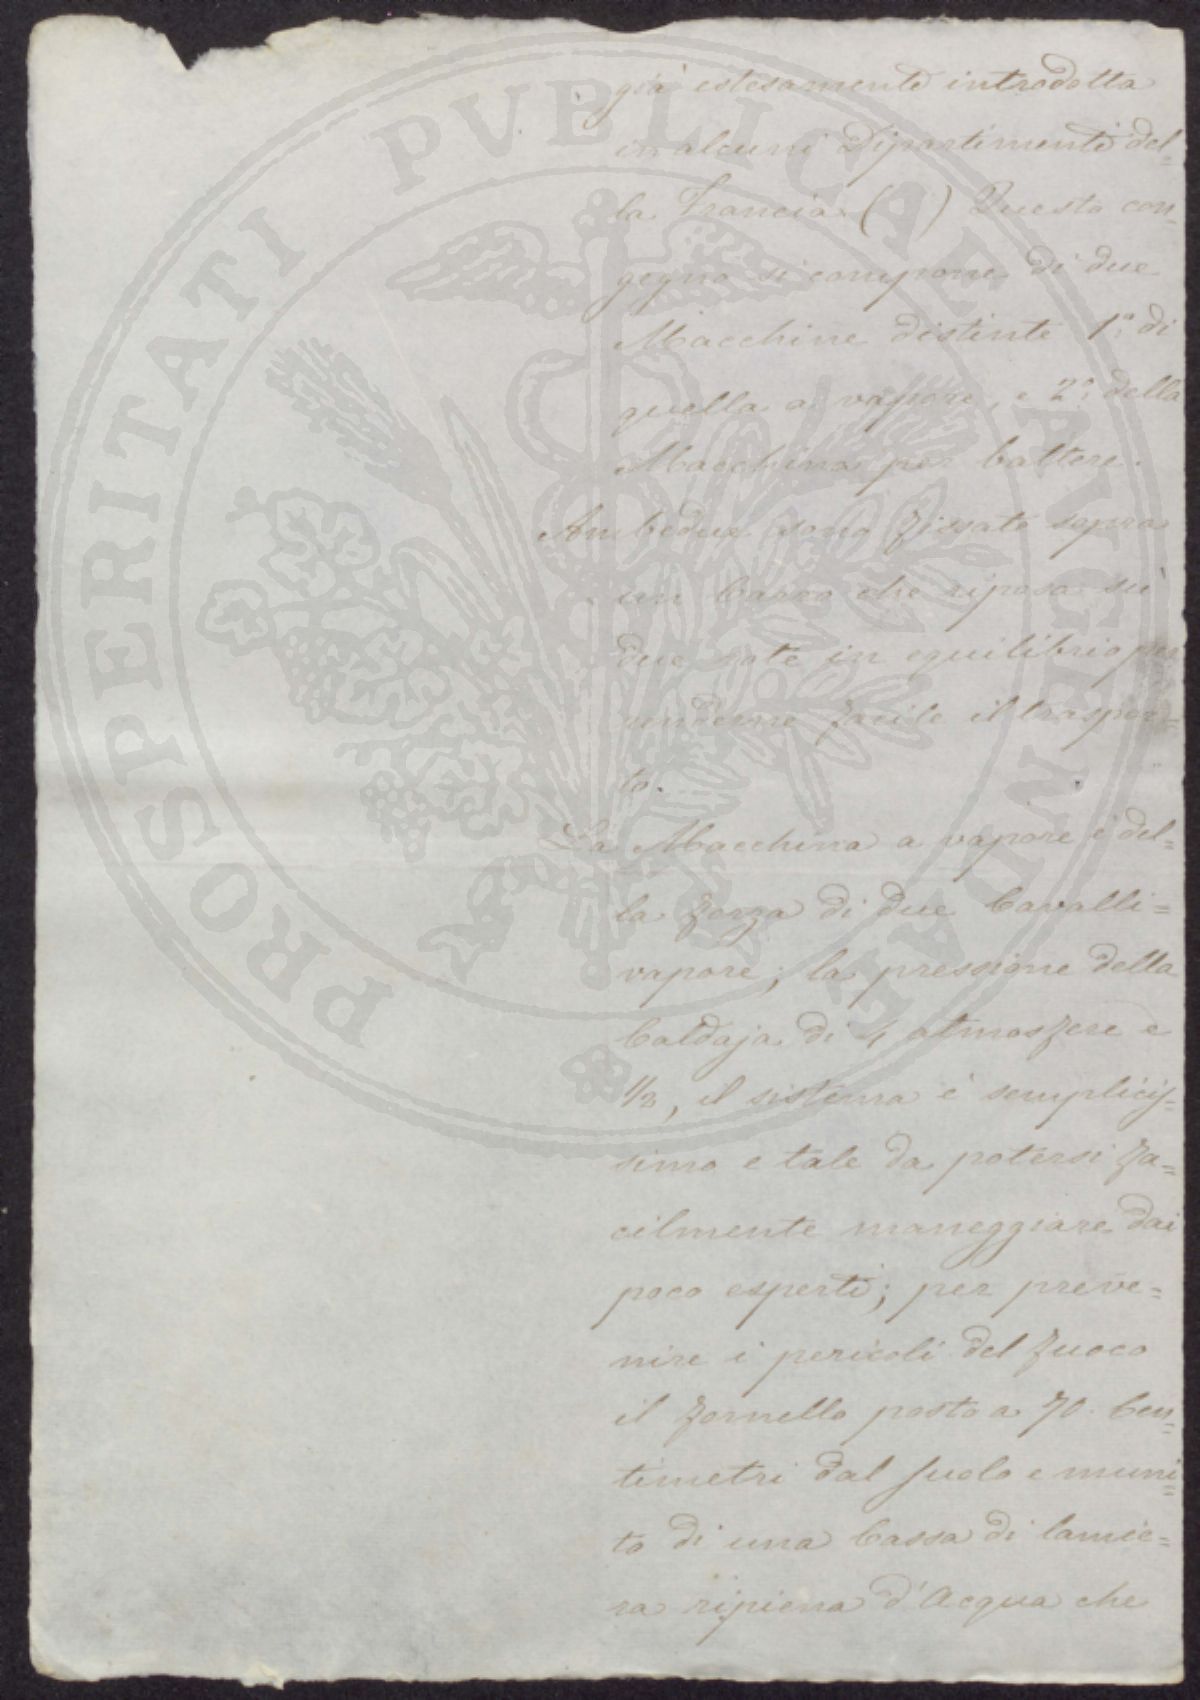 già estesamente introdotta
in alcuni Dipartimenti del=
la Francia ( ) Questo con=
gegno si compone di due
Macchine distinte 1.ª di
quella a vapore, e 2.ª della
Macchina per battere.
Ambedue sono fissate sopra
un Carro che riposa su
due rote in equilibrio per
renderne facile il traspor=
to.
La Macchina a vapore è del=
la forza di due Cavalli=
vapore; la pressione della
Caldaja di 4 atmosfere e
1/2, il sistema è semplicis=
simo e tale da potersi fa=
cilmente maneggiare dai
poco esperti; per preve=
nire i pericoli del fuoco
il fornello posto a 70. Cen=
timetri dal suolo e muni=
to di una Cassa di lamie=
ra ripiena d'Acqua che
PROSPERITATI PVBLICAE AVGENDAE